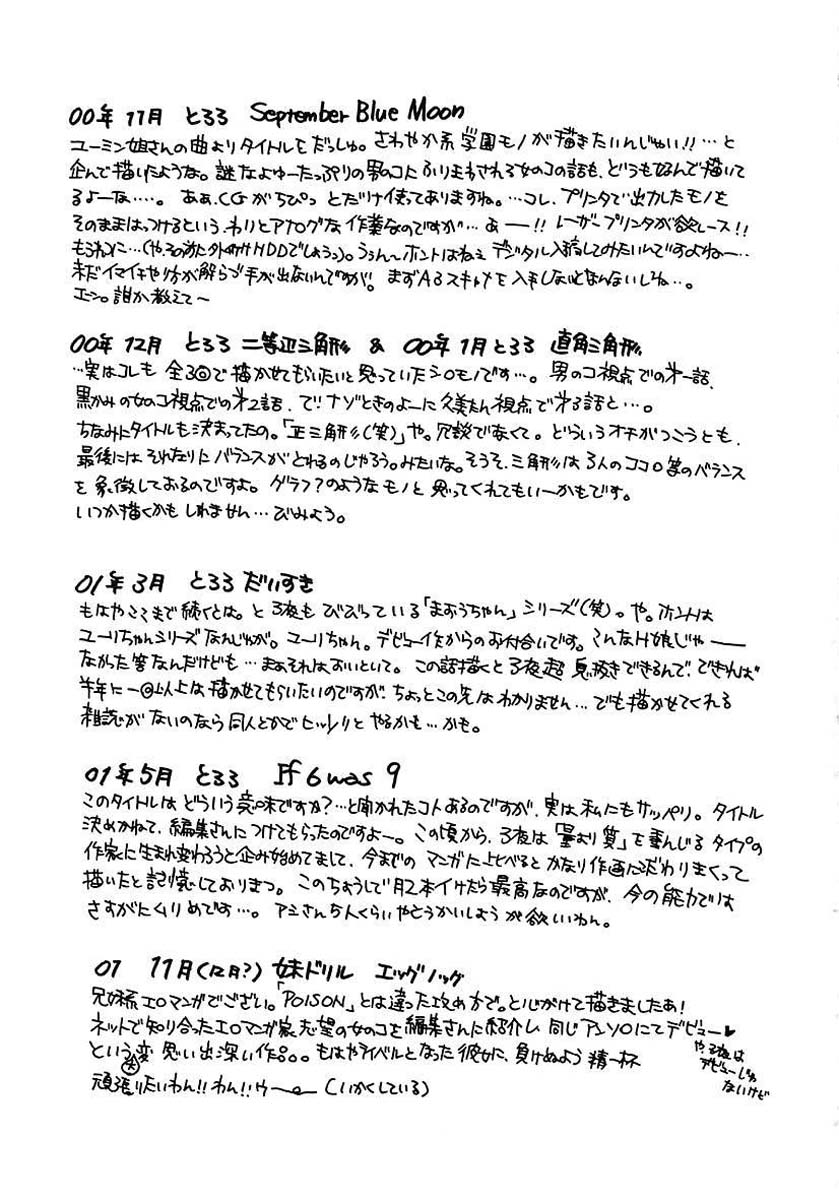 00年 11月 とろろ September Blue Moon
ユーミン姐さんの曲よりタイトルをだっしゅ。さわやか系学園モノが描きたいんじゃい!!…と
企んで描いたような。謎なよゆーたっぷりの男のコにふりまわされる女のコの話も、どうもなんで描いて
るよーな…。 ああ、CGがちぴっとだけ使ってありますね。…コレ、プリンタで出力したモノを
そのままはっつけるという、わりとアナログな作業なのですが…あー!! レーザープリンタが欲しース!!
(や、その前に外付けHDDでしょうっ)。ううん〜ホントはねぇ デジタル入稿してみたいんですよねー…
未だイマイチやり方が解らず手が出ないんですが。まずA3スキャナを入手しないとなんないしね…。
エーン。誰か教えて〜
00年 12月 とろろ 二等辺三角形 & 00年 1月 とろろ 直角三角形
…実はコレも 全3回で描かせてもらいたいと思っていたシロモノです…。男のコ視点での第一話、
黒かみの女のコ視点での第2話、で!!ナゾときのよーに久美たん視点で第3話と…。
ちなみにタイトルも決まってたの。「正三角形(笑)」や。冗談でなくて。どういうオチがつこうとも、
最後にはそれなりにバランスがとれるのじゃろう。みたいな。そうそ、三角形は3人のココロ等のバランス
を象徴しておるのですよ。グラフ?のようなモノと思ってくれてもいーかもです。
いつか描くかもしれません…びみょう。
01年 3月 とろろ だいすき
もはやここまで続くとは。と子夜もびびっている「まおうちゃん」シリーズ(笑)。や。ホントは
ユーリちゃんシリーズなんじゃが。ユーリちゃん。デビュー作からのお付合いです。こんなH娘じゃ――
なかった筈なんだけども…まあそれはおいといて。この話描くと子夜超 息抜きできるんで、できれば
半年に一回以上は描かせてもらいたいのですが、ちょっとこの先はわかりません…でも描かせてくれる
雑誌がないのなら同人とかでヒッソリとやるかも…かも。
01年 5月 とろろ If 6 was 9
このタイトルはどういう意味ですか?…と聞かれたコトあるのですが、実は私にもサッパリ。タイトル
決めかねて、編集さんにつけてもらったのですよー。この頃から、子夜は「量より質」を重んじるタイプの
作家に生まれ変わろうと企み始めてまして、今までのマンガに比べるとかなり作画にこだわりまくって
描いたと記憶しておりまつ。このちょうしで月2本イけたら最高なのですが、今の能力では
さすがにムリめです…。アシさん5人くらいやとうかいしょうが欲しいわん。
01 11月(12月?) 妹ドリル エッグノッグ
兄妹系エロマンガでございます。「POISON」とは違った攻め方で。と心がけて描きましたあ!
ネットで知り合ったエロマンガ家志望の女のコを編集さんに紹介し 同じアンソロにてデビュー♥
や、子夜は
デビューじゃ
ないけど
という変 思い出深い作品。もはやライバルとなった彼女に、負けぬよう 精一杯
(笑)
頑張りたいわん!!わん!!ウ〜 (いかくしている)